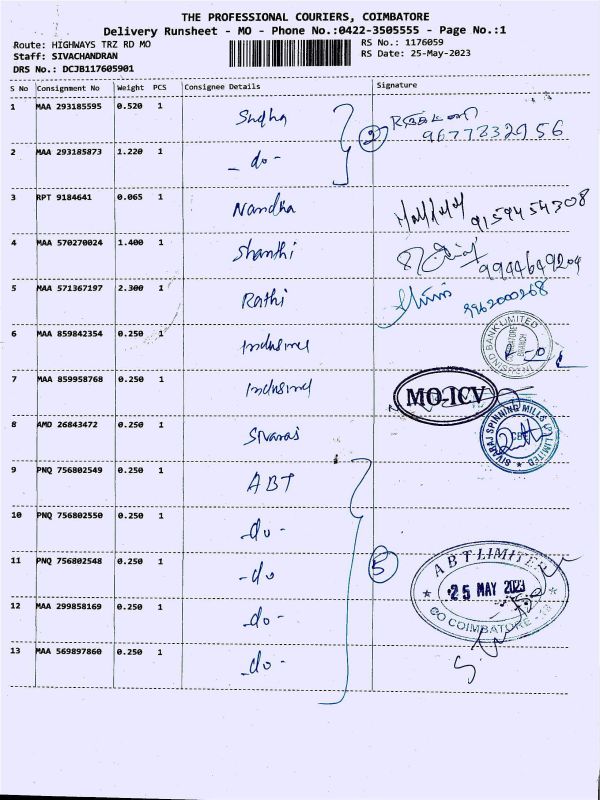 THE PROFESSIONAL COURIERS, COIMBATORE
Delivery Runsheet - MO - Phone No.:0422-3505555 - Page No.:1
Route: HIGHWAYS TRZ RD MO RS No.: 1176059
Staff: SIVACHANDRAN RS Date: 25-May-2023
DRS No.: DCJB117605901
S No Consignment No Weight PCS Consignee Details Signature
1 MAA 293185595 0.520 1 Sudha
2 9677832956
2 MAA 293185873 1.220 1 - do -
3 RPT 9184641 0.065 1 Nandha 9159454308
4 MAA 570270024 1.400 1 Shanthi 9944649204
5 MAA 571367197 2.300 1 Rathi 9962000268
6 MAA 859842354 0.250 1 Indusind
INDUSIND BANK LIMITED
7 MAA 859958768 0.250 1 Indusind MO-ICV
8 AMD 26843472 0.250 1 Sivaraj
SIVARAJ SPINNING MILLS (P) LIMITED
CBE
9 PNQ 756802549 0.250 1 ABT
10 PNQ 756802550 0.250 1 - do -
11 PNQ 756802548 0.250 1 - do 5
ABT LIMITED
25 MAY 2023
CO COIMBATORE - 18
12 MAA 299858169 0.250 1 - do -
13 MAA 569897860 0.250 1 - do -